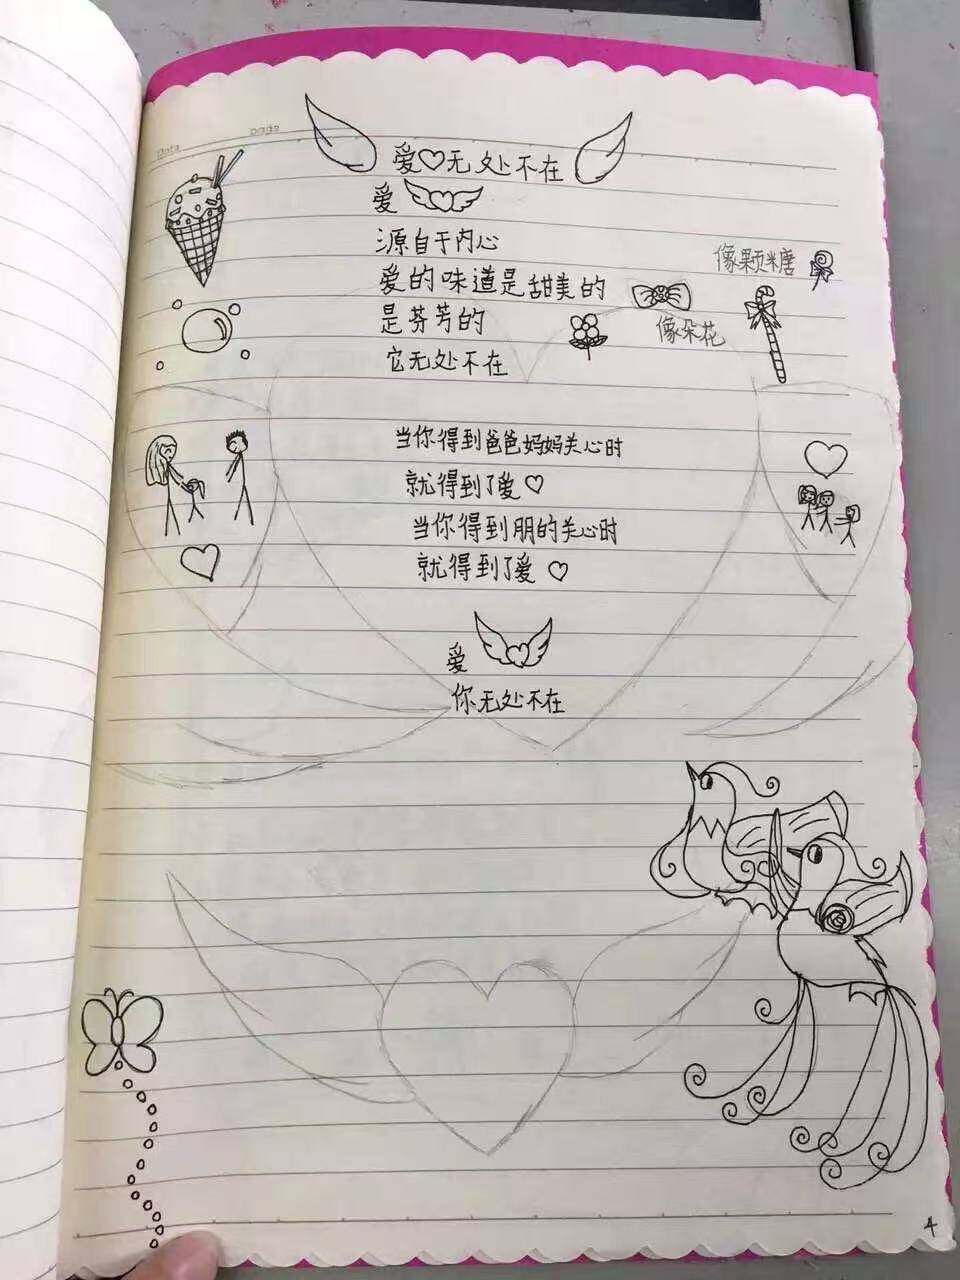 Date
page
爱♡无处不在
爱
源自于内心
像颗糖
爱的味道是甜美的
是芬芳的
像朵花
它无处不在
当你得到爸爸妈妈关心时
就得到了爱♡
当你得到朋的关心时
就得到了爱♡
爱
你无处不在
4